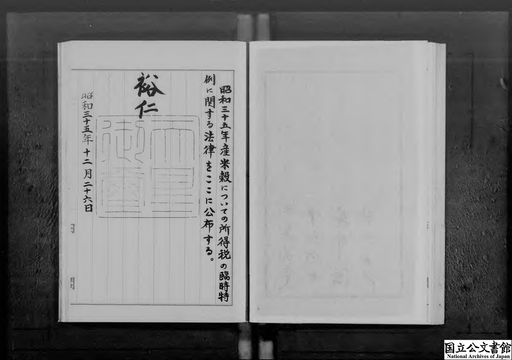 昭和三十五年産米穀についての所得税の臨時特
例に関する法律をここに公布する。
裕仁
天皇御璽
昭和三十五年十二月二十六日
国立公文書館
National Archives of Japan